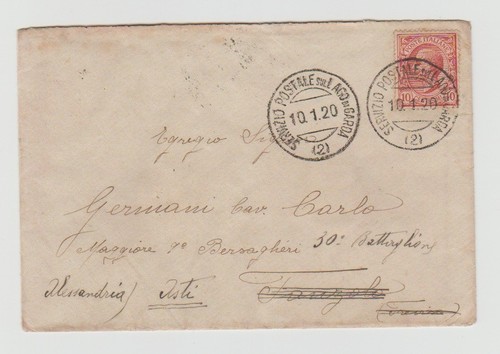 POSTE ITALIANE
10 10
SERVIZIO POSTALE SUL LAGO DI GARDA
10.1.20
(2)
SERVIZIO POSTALE SUL LAGO DI GARDA
10.1.20
(2)
Egregio Sig
Germani Cav. Carlo
Maggiore 9º Bersaglieri 30º Battaglione
Alessandria) Asti